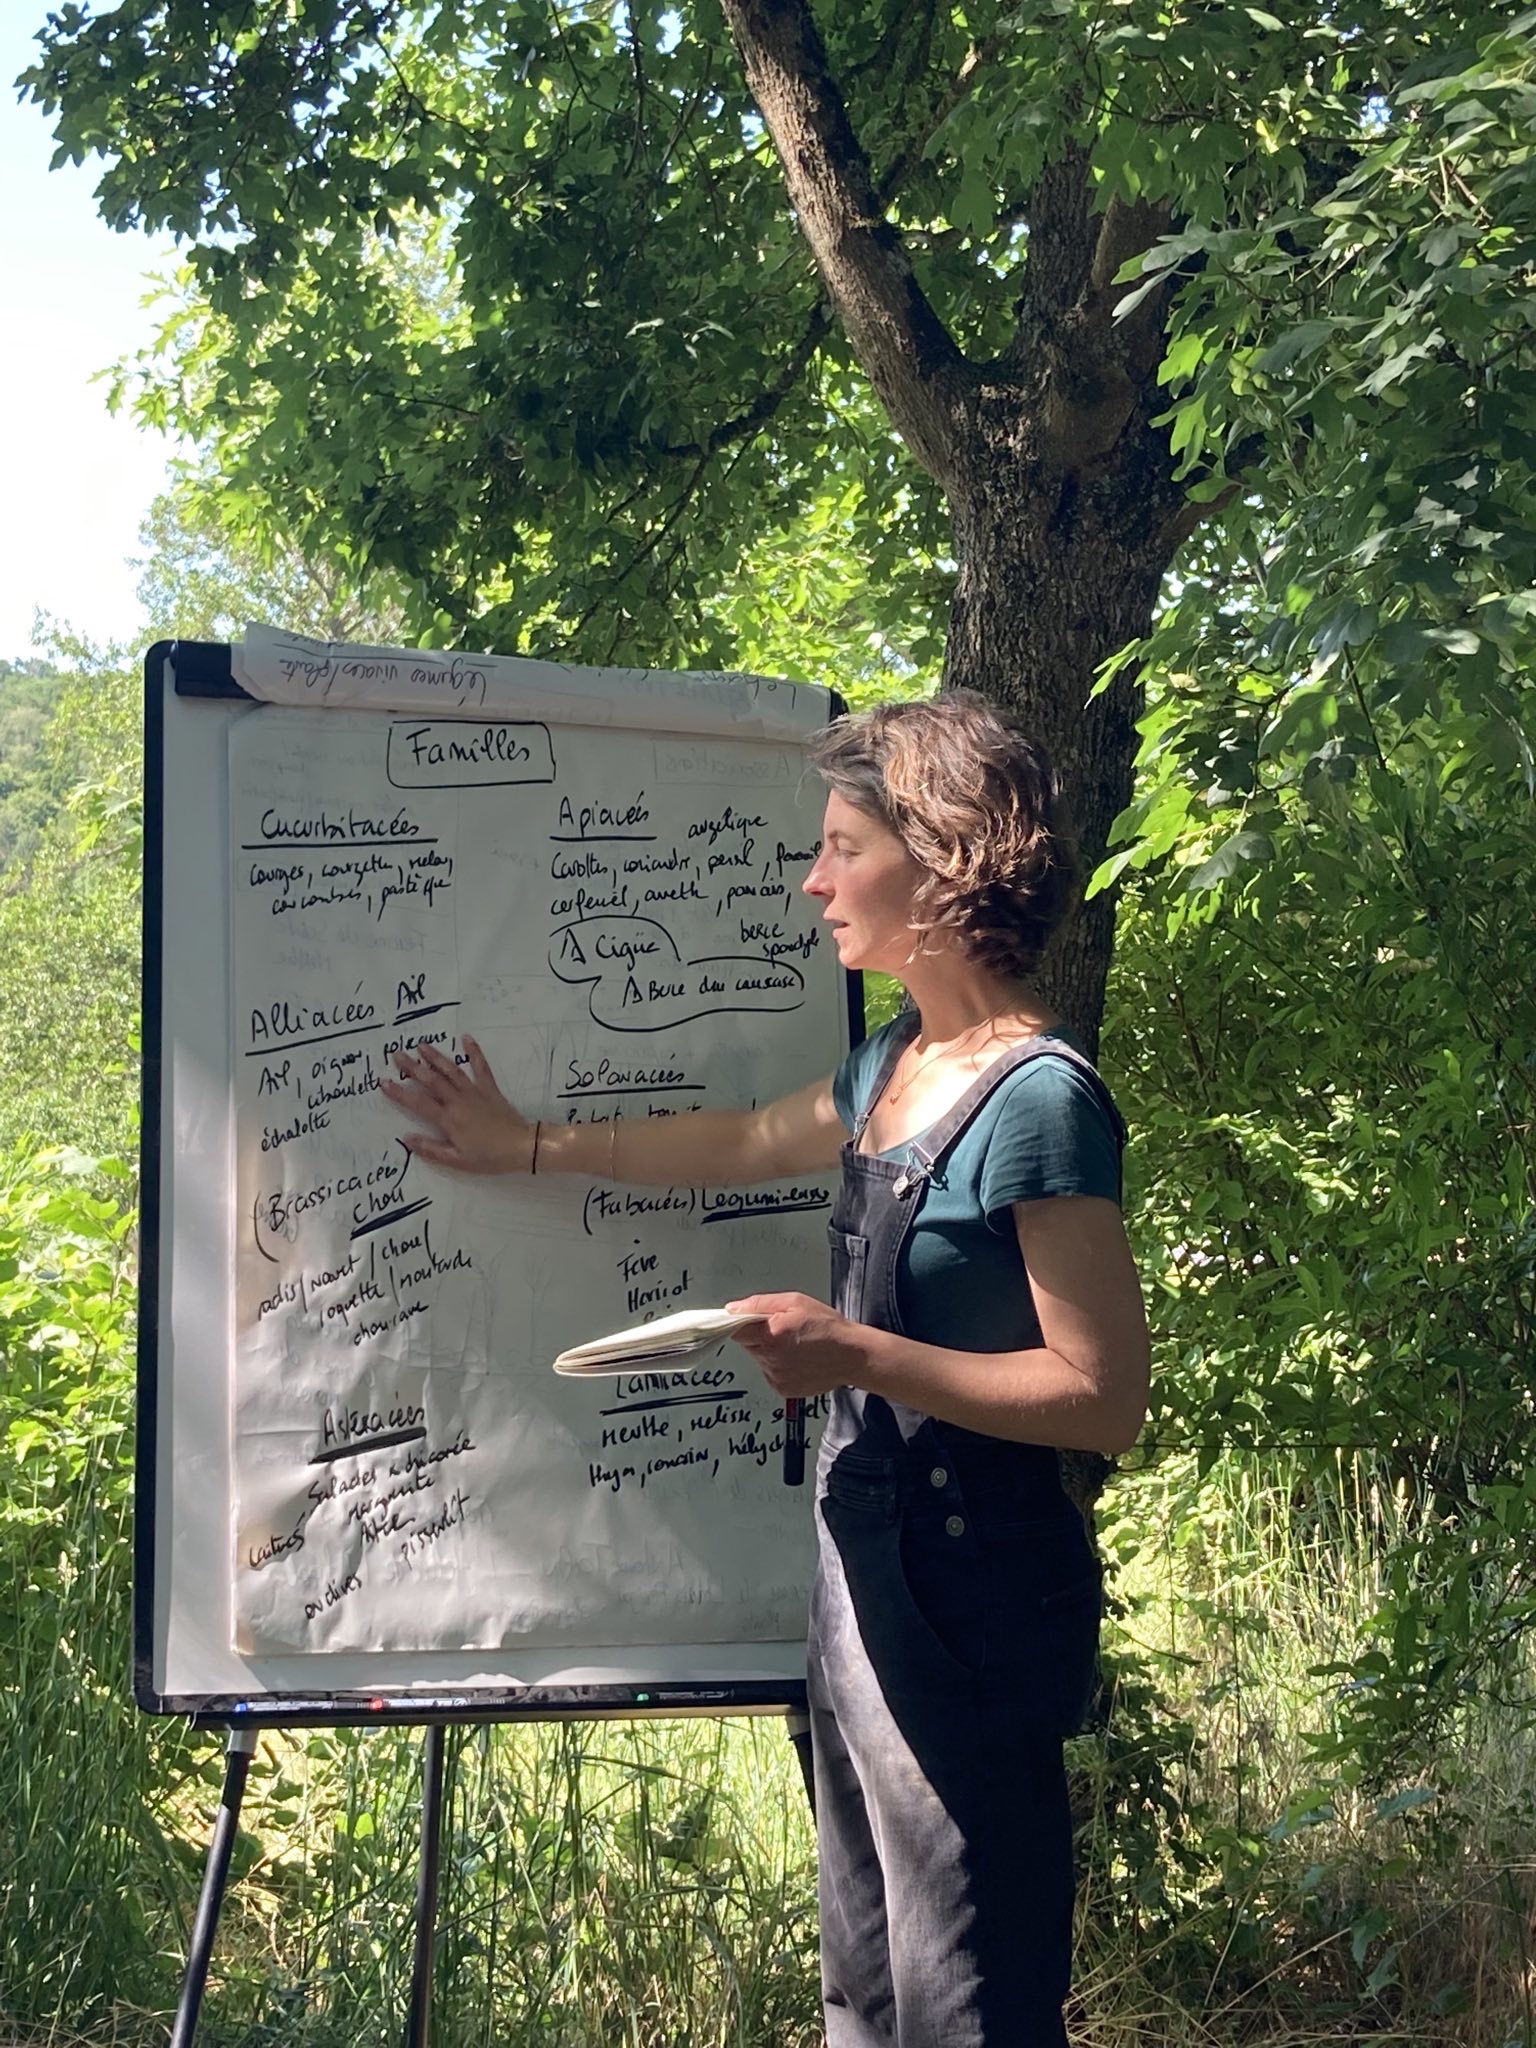 Légumes vivaces/plante
Familles
Cucurbitacées
courges, courgette, melon,
concombres, pastèque
Alliacées Ail
Ail, oignon, poireaux,
ciboulette
échalotte
(Brassicacées)
chou
radis/navet/chou/
roquette/moutarde
chourave
Astéracées
Salades chicorée
marguerite
pissenlit
endives
Apiacées
angélique
Carottes, coriandre, persil, fenouil
cerfeuil, aneth, panais,
berce
spondyle
Cigüe
Berce du caucase
Solanacées
(Fabacées) Légumineuses
Fève
Haricot
Lamiacées
menthe, melisse,
thym, romarin,